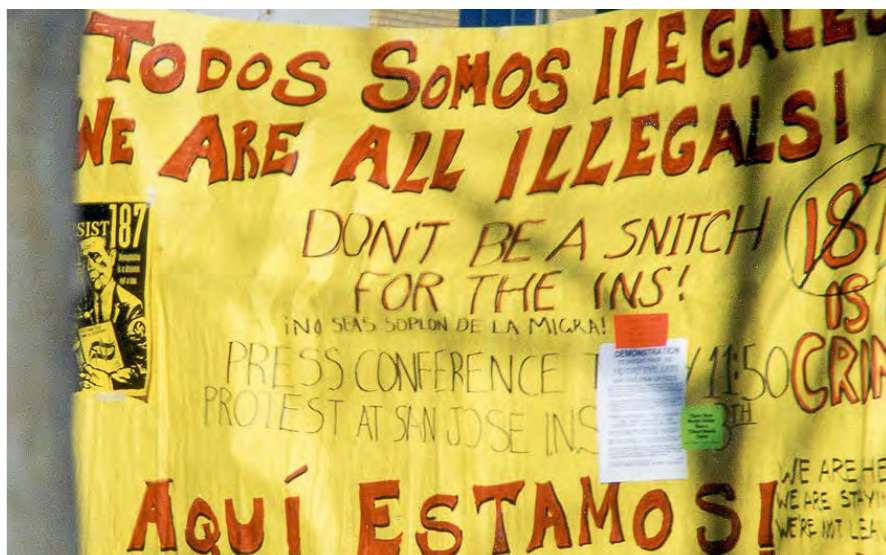 TODOS SOMOS ILEGALES
WE ARE ALL ILLEGALS!
SIST 187
DON'T BE A SNITCH
FOR THE INS!
¡NO SEAS SOPLON DE LA MIGRA!
187
IS
CRIM
PRESS CONFERENCE T Y 11:50
PROTEST AT SAN JOSE INS TH
DEMONSTRATION
AQUÍ ESTAMOS
WE ARE HE
WE ARE STAYIN
WE'RE NOT LEA